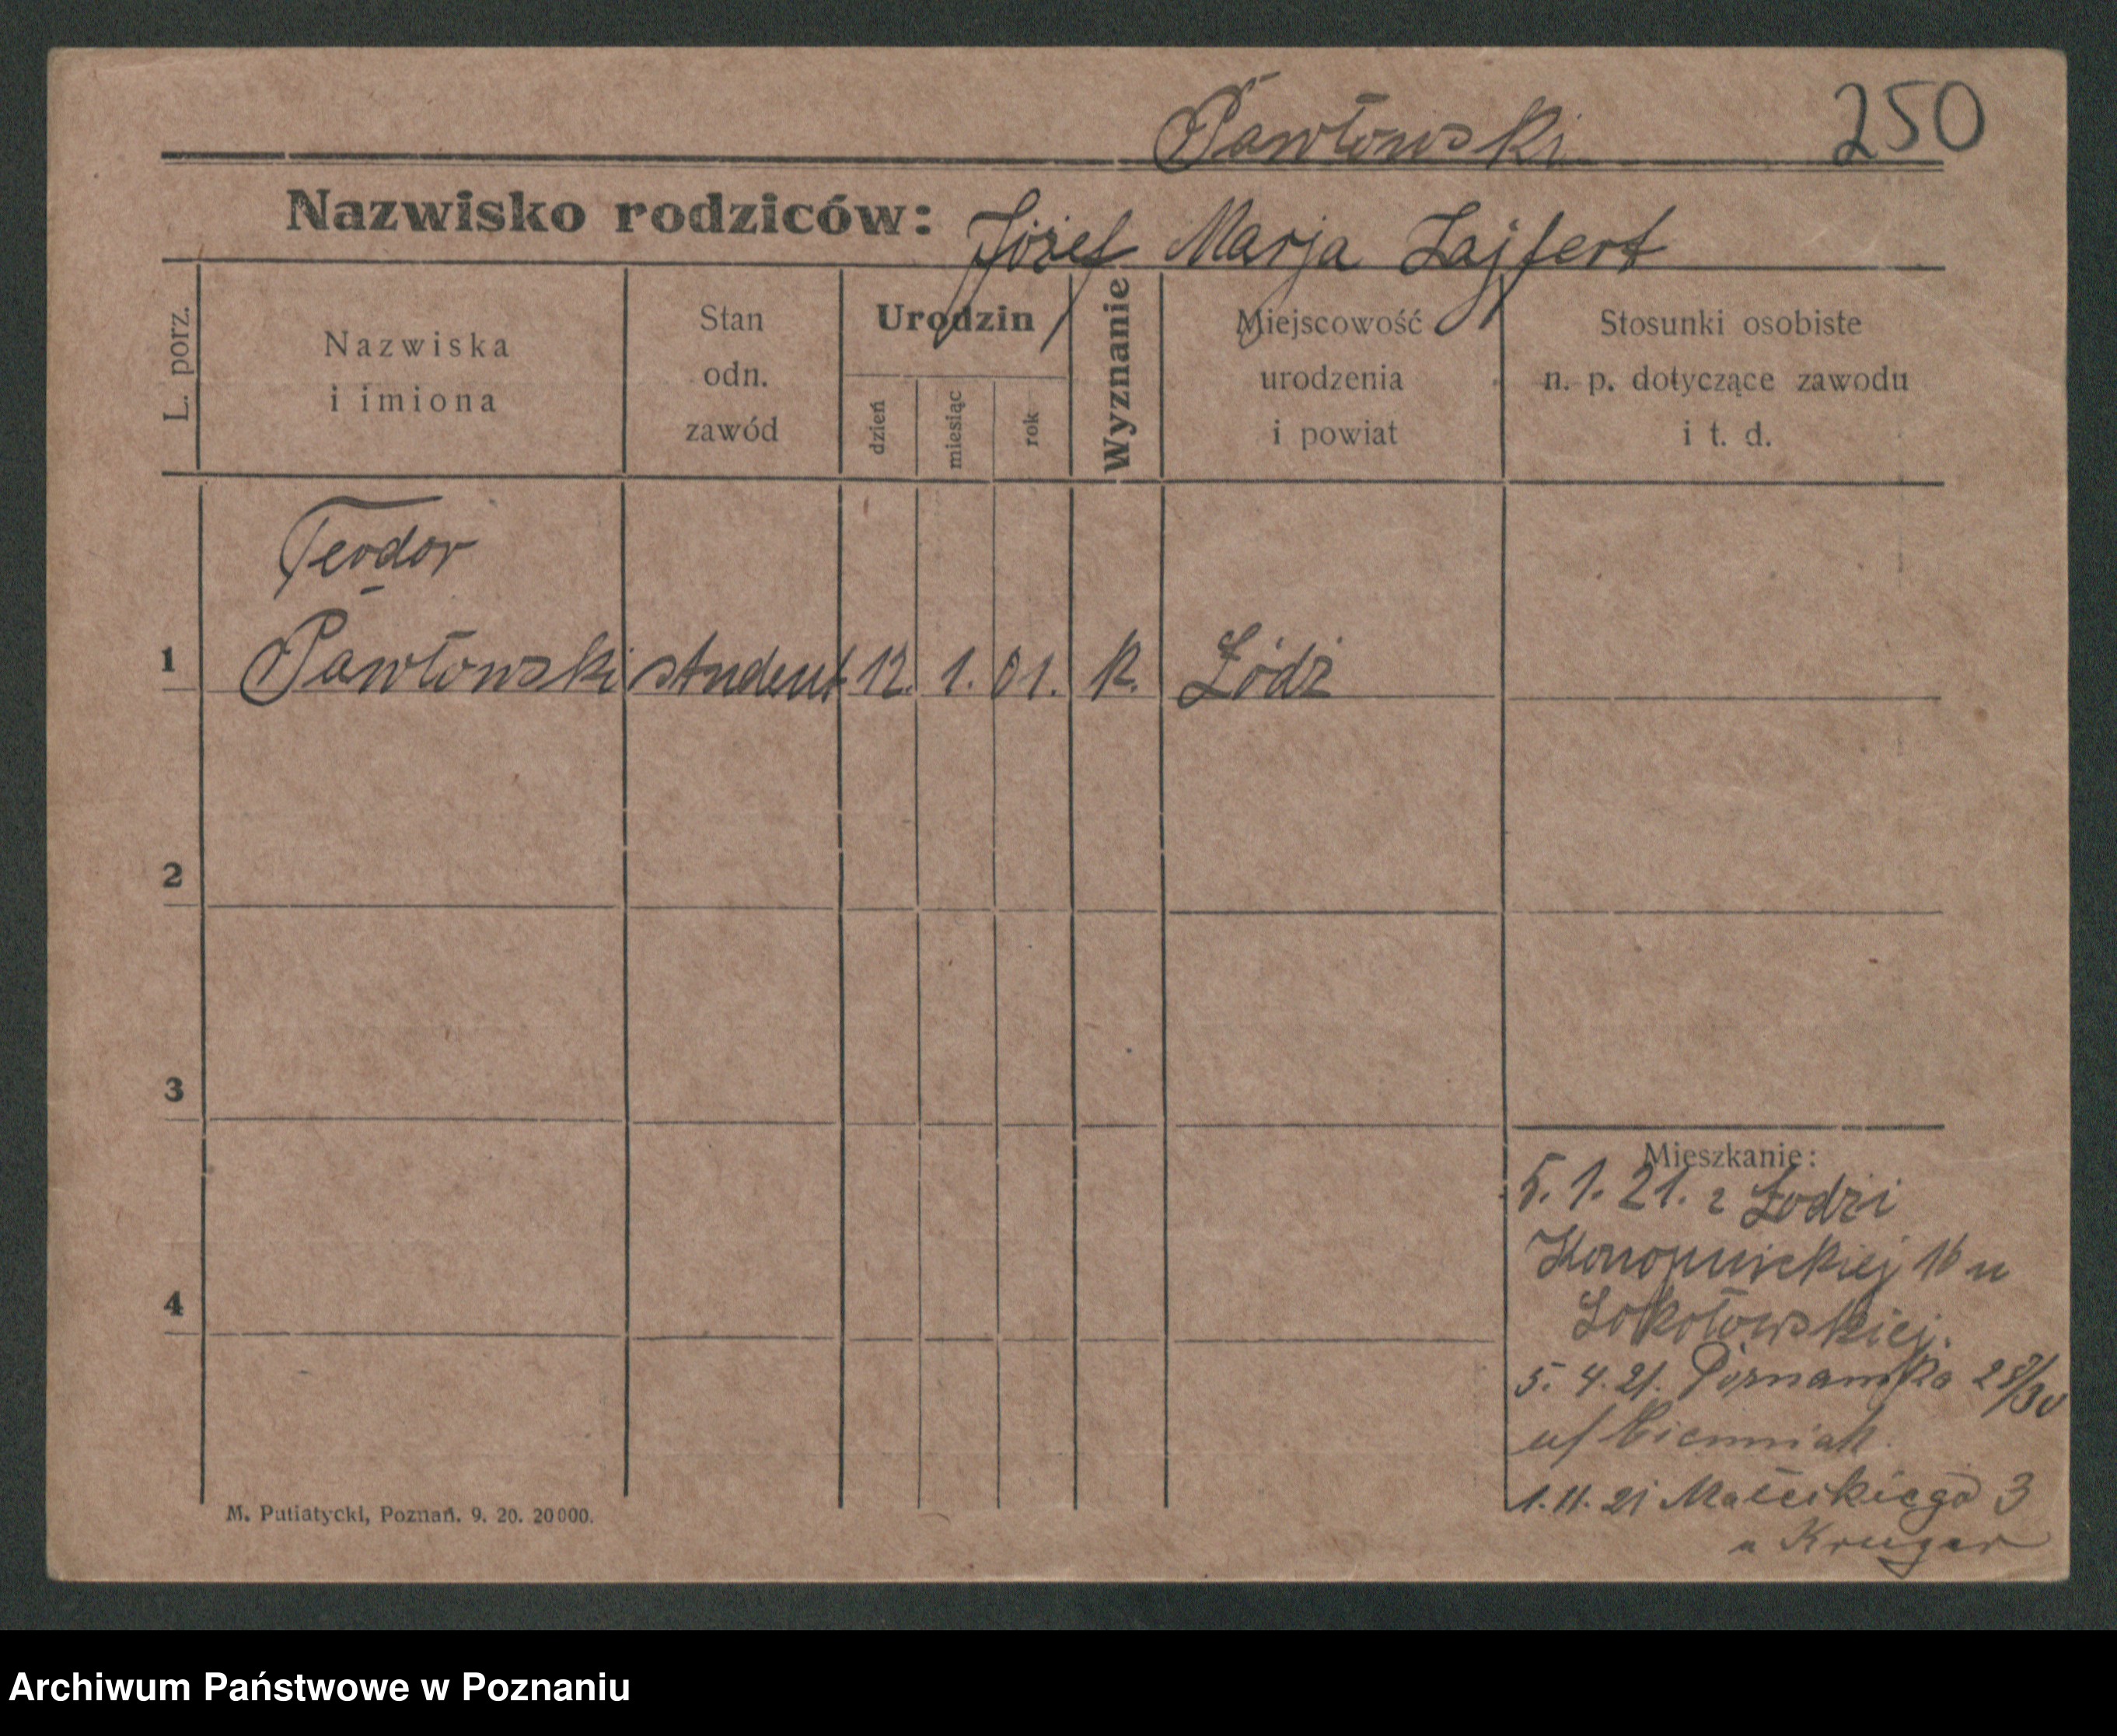 Pawłowski 250
Nazwisko rodziców: Józef Marja Zajfert
L. porz.
Nazwiska
i imiona
Stan
odn.
zawód
Urodzin
dzień
miesiąc
rok
Wyznanie
Miejscowość
urodzenia
i powiat
Stosunki osobiste
n. p. dotyczące zawodu
i t. d.
Teodor
1 Pawłowski student 12. 1. 01. k. Łódź
2
3
4
Mieszkanie:
5. 1. 21. z Łodzi
Konopnickiej 16 u
Sokołowskiej.
5. 4. 21. Poznańska
1. 11. 21 Małeckiego 3
u Kruger
M. Putiatycki, Poznań. 9. 20. 20000.
Archiwum Państwowe w Poznaniu